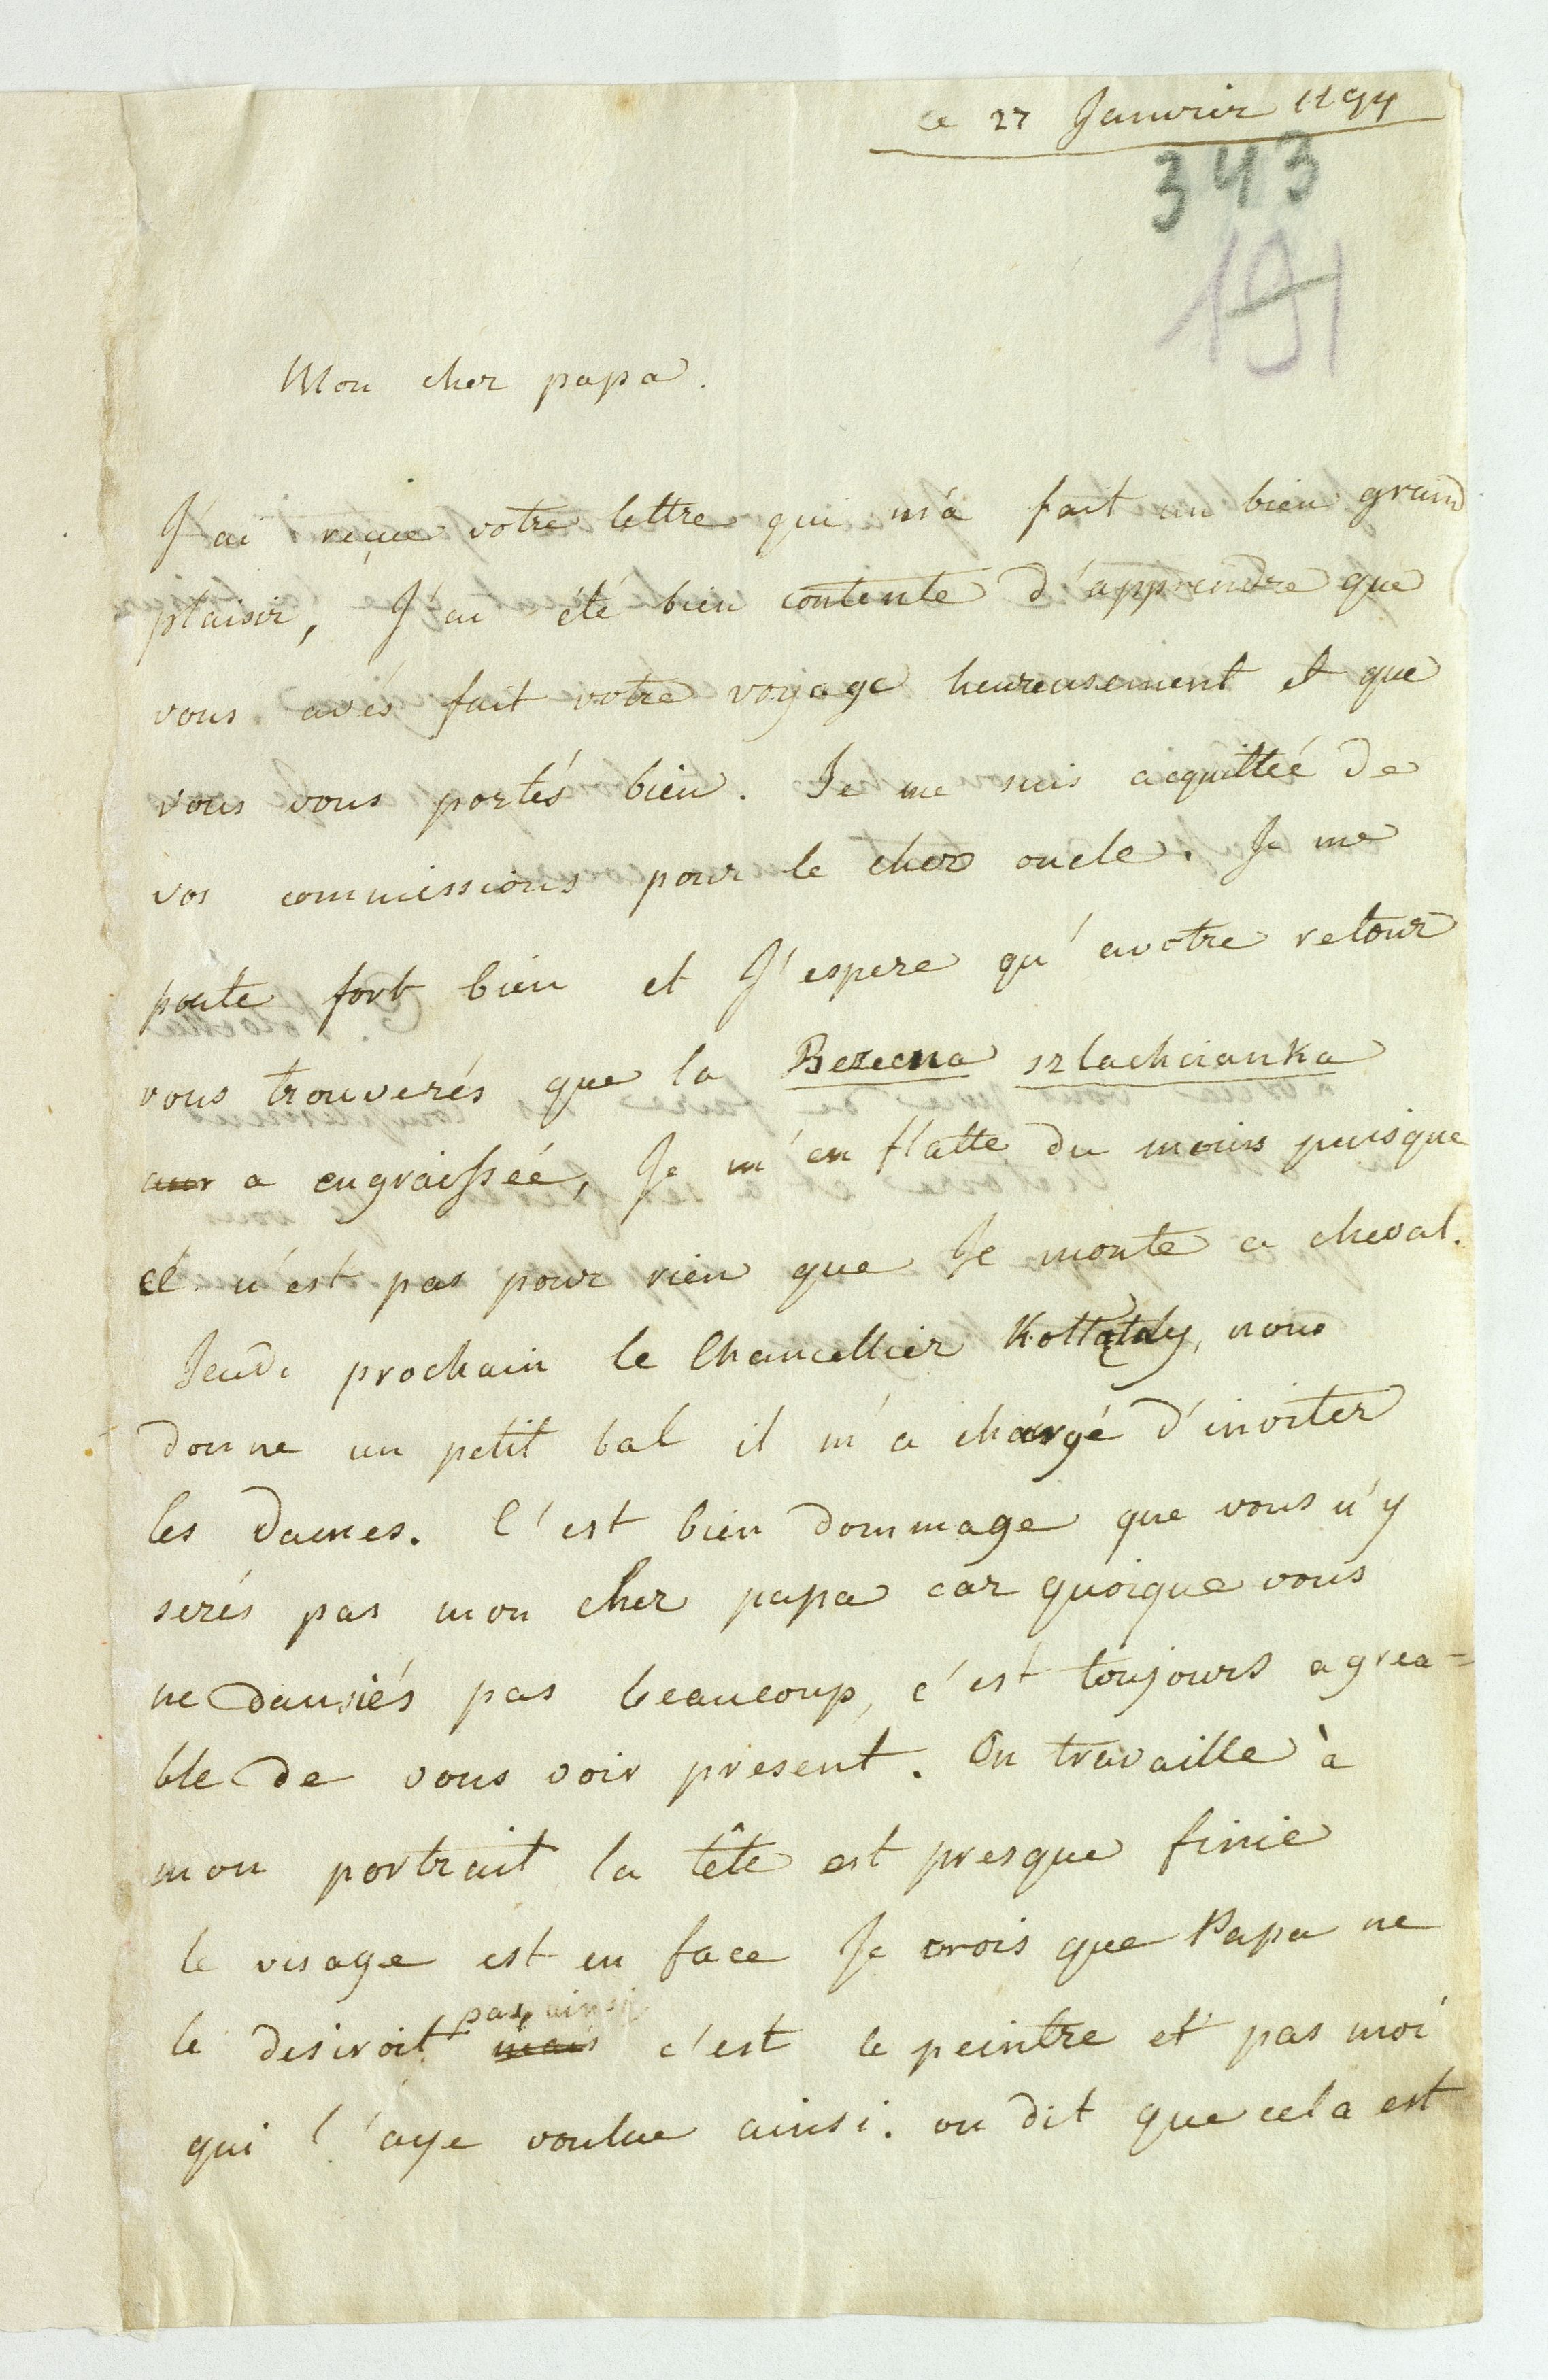 ce 27 Janvier
343
191
Mon cher papa.
J'ai reçue votre lettre qui m'a fait un bien grand
plaisir, J'ai été bien contente d'apprendre que
vous avés fait votre voyage heureusement et que
vous vous portés bien. Je me suis acquittée de
vos commissions pour le cher oncle. Je me
porte fort bien et J'espere qu'a votre retour
vous trouverés que la Bezecna szlachcianka
a engraissée, Je m'en flatte du moins puisque
ce n'est pas pour rien que Je monte a cheval.
Jeudi prochain le Chancellier nous
donne un petit bal il m'a chargé d'inviter
les dames. C'est bien dommage que vous n'y
serés pas mon cher papa car quoique vous
ne dansiés pas beaucoup, c'est toujours agrea=
ble de vous voir present. On travaille à
mon portrait la tête est presque finie
le visage est en face Je crois que Papa ne
pas, ainsi
le desiroit mais c'est le peintre et pas moi
qui l'aye voulue ainsi. on dit que cela est